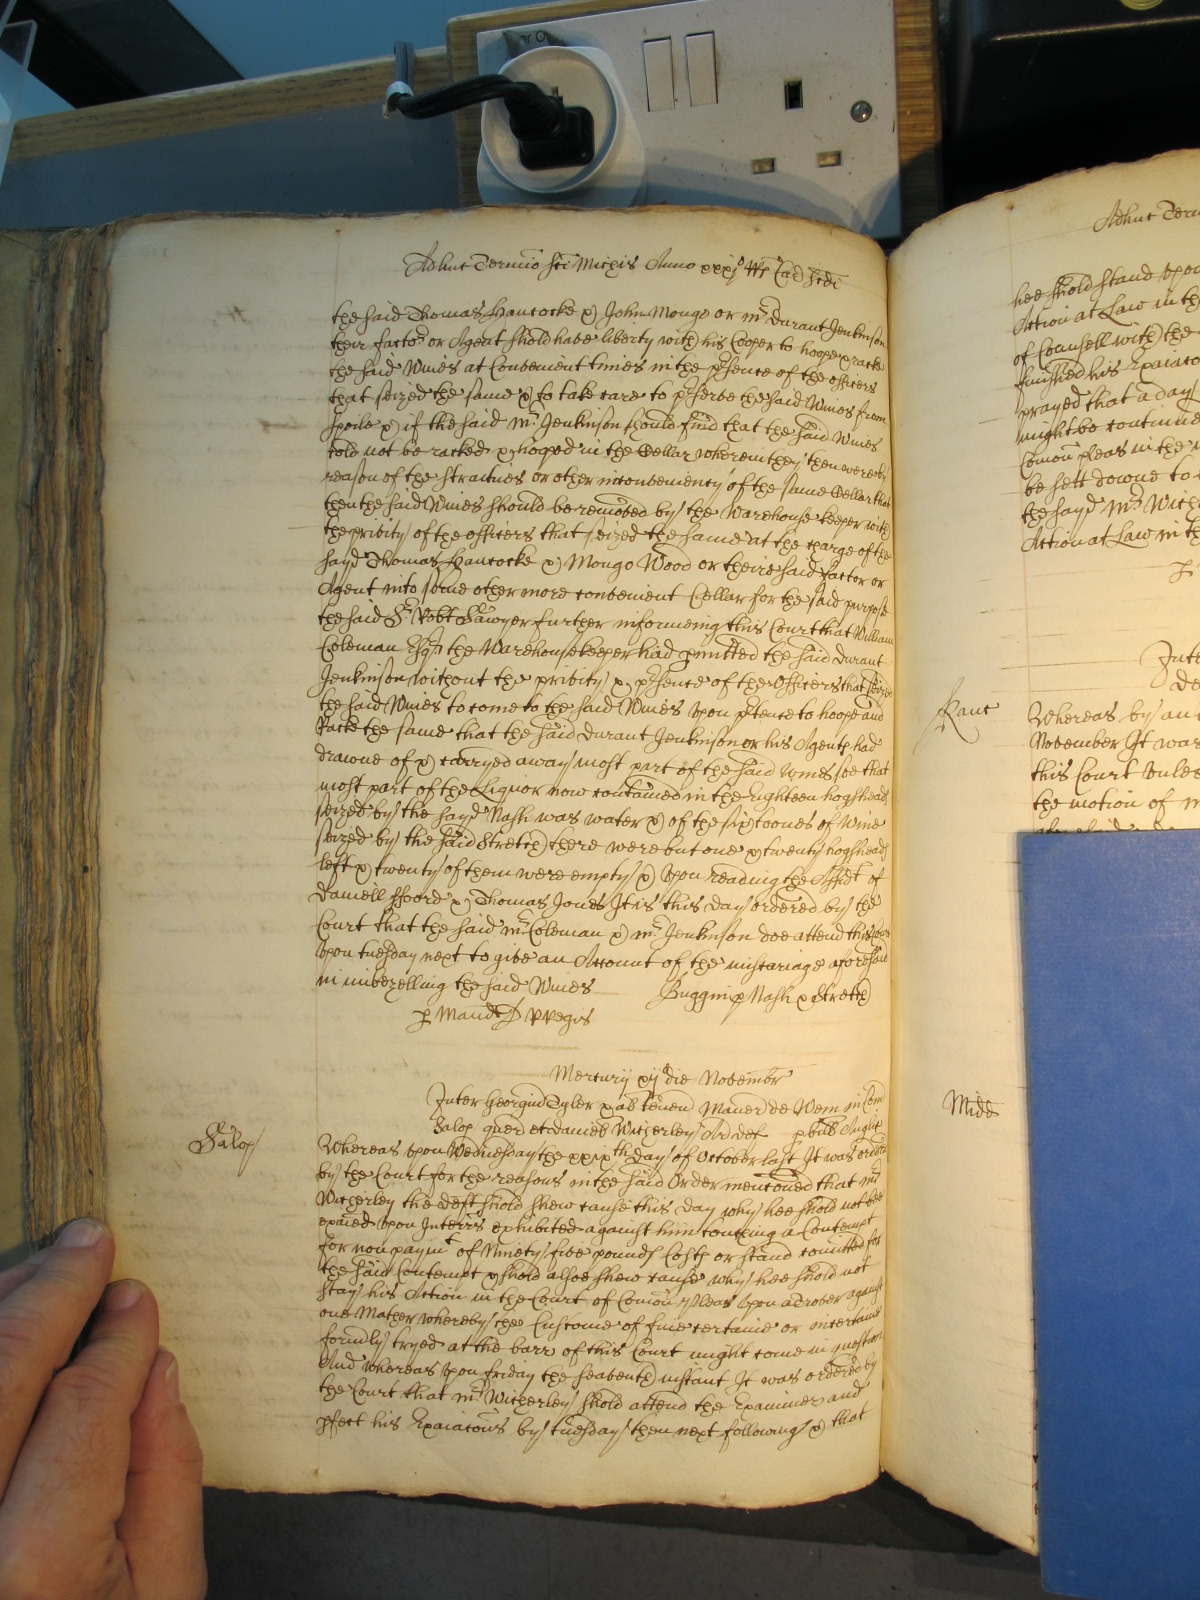 Adhuc Termio sci Michis Anno xxxj° Rs Car scdi
the said Thomas Hancocke & John Mongo or mr Durant Jenkinson
their factor or Agent shold have liberty with his Cooper to hoope & racke
the said Wines at Convenient times in the psence of the officers
that seized the same & to take care to pserve the said Wines from
spoile & if the said mr Jenkinson should find that the said Wines
cold not be racked & hooped in the Cellar wherein they then were by
reason of the straitnes or other inconveniency of the same Cellar that
then the said Wines should be removed by the Warehouse keeper with
the privity of the officers that seized the same at the charge of the
sayd Thomas Hancocke & Mongo Wood or theire said factor or
Agent into some other more convenient Cellar for the said purpose
the said Sr Robt Sawyer further informeing this Court that William
Coleman Esqr the Warehousekeeper had pmitted the said Durant
Jenkinson without the privity & psence of the Officers that seized
the said Wines to come to the said Wines upon ptence to hoope and
Racke the same that the said Durant Jenkinson or his Agents had
drawne of & carryed away most part of the said wines soe that
most part of the Liquor now contained in the Eighteen hogsheads
seized by the sayd Nash was water & of the six toones of Wine
seized by the said Stretch there were but one & twenty hogsheads
left & twenty of them were empty & upon reading the Affidt of
Daniell fforde & Thomas Jones It is this day ordered by the
Court that the said mr Coleman & mr Jenkinson doe attend this Court
upon tuesday next to give an Account of the miscariage aforesaid
in imbezelling the said Wines Buggin p Nash & Stretch
p Mand D Regis
Mercurij xij° die Novembr
Inter Georgiu Tyler & al tenen Manerij de Wem in Com
Salop quer et Daniel Witherley Ar def p bill Anglic
Salop
Whereas upon Wednesday the xxixth day of October last It was ordered
by the Court for the reasons in the said Order mentioned that mr
Witherley the deft shold shew cause this day why hee shold not bee
exaied upon Interrs exhibited against him touching a Contempt
for non paymt of Ninety five pounds Costs or stand comitted for
the said Contempt & shold alsoe shew cause why hee shold not
stay his Action in the Court of Comon pleas upon a trover against
one Mather whereby the Custome of fine certaine or incertaine
formly tryed at the barr of this Court might come in question
And whereas upon friday the seaventh instant It was ordered by
the Court that mr Witherley shold attend the Examiner and
pfect his Exaiacons by tuesday then next following & that
Adhuc Term
hee shold stand upon
Action at Law in th
of Counsell with the
finished his Exaiaco
prayed that a day
might be continued
Comon pleas in the
be sett downe to
the sayd mr With
Action at Law in th
Kanc
Whereas by an
November It was
this Court Rules
the motion of m
Midd